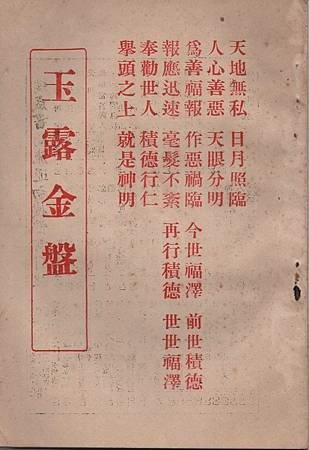 天地無私 日月照臨
人心善惡 天眼分明
爲善福報 作惡禍臨 今世福澤 前世積德
報應迅速 毫髮不紊 再行積德 世世福澤
奉勸世人 積德行仁
舉頭之上 就是神明
玉露金盤